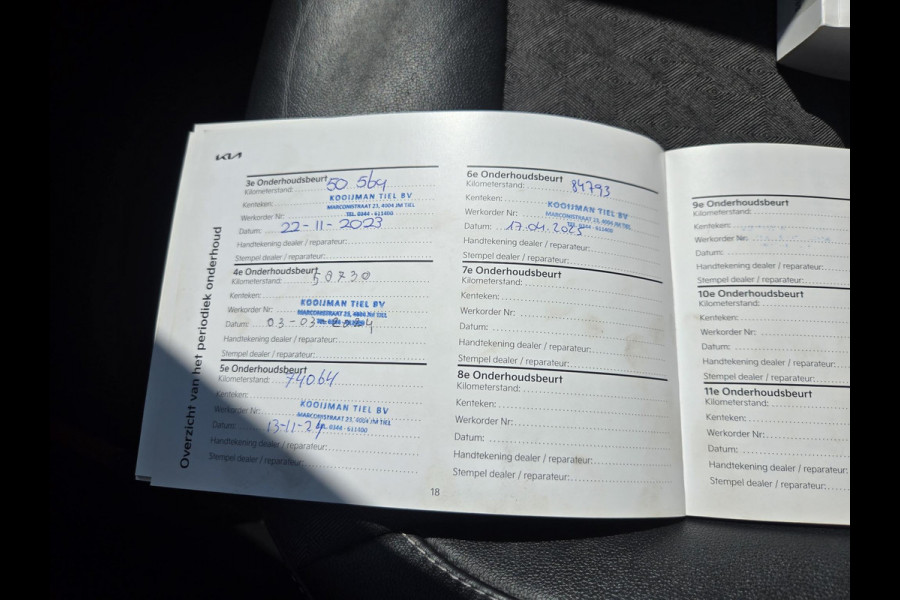 KIA
Overzicht van het periodiek onderhoud
3e Onderhoudsbeurt
Kilometerstand: 50 564
Kenteken:
KOOIJMAN TIEL BV
MARCONISTRAAT 23, 4004 JM TIEL
TEL. 0344 - 611400
Werkorder Nr:
Datum: 22-11-2023
Handtekening dealer / reparateur:
Stempel dealer / reparateur:
4e Onderhoudsbeurt
Kilometerstand: 58730
Kenteken:
KOOIJMAN TIEL BV
MARCONISTRAAT 23, 4004 JM TIEL
Werkorder Nr:
Datum: 03-03-2024
Handtekening dealer / reparateur:
Stempel dealer / reparateur:
5e Onderhoudsbeurt
Kilometerstand: 74064
Kenteken:
KOOIJMAN TIEL BV
MARCONISTRAAT 23, 4004 JM TIEL
0344 - 611400
Werkorder Nr:
Datum: 13-11-24
Handtekening dealer / reparateur:
Stempel dealer / reparateur:
18
6e Onderhoudsbeurt
Kilometerstand: 84793
Kenteken:
KOOIJMAN TIEL BV
MARCONISTRAAT 23, 4004 JM TIEL
TEL. 0344 - 611400
Werkorder Nr:
Datum: 17.04.2025
Handtekening dealer / reparateur:
Stempel dealer / reparateur:
7e Onderhoudsbeurt
Kilometerstand:
Kenteken:
Werkorder Nr:
Datum:
Handtekening dealer / reparateur:
Stempel dealer / reparateur:
8e Onderhoudsbeurt
Kilometerstand:
Kenteken:
Werkorder Nr:
Datum:
Handtekening dealer / reparateur:
Stempel dealer / reparateur:
9e Onderhoudsbeurt
Kilometerstand:
Kenteken:
Werkorder Nr:
Datum:
Handtekening dealer / reparateur:
Stempel dealer / reparateur:
10e Onderhoudsbeurt
Kilometerstand:
Kenteken:
Werkorder Nr:
Datum:
Handtekening dealer / reparateur:
Stempel dealer / reparateur:
11e Onderhoudsbeurt
Kilometerstand:
Kenteken:
Werkorder Nr:
Datum:
Handtekening dealer / reparateur:
Stempel dealer / reparateur: